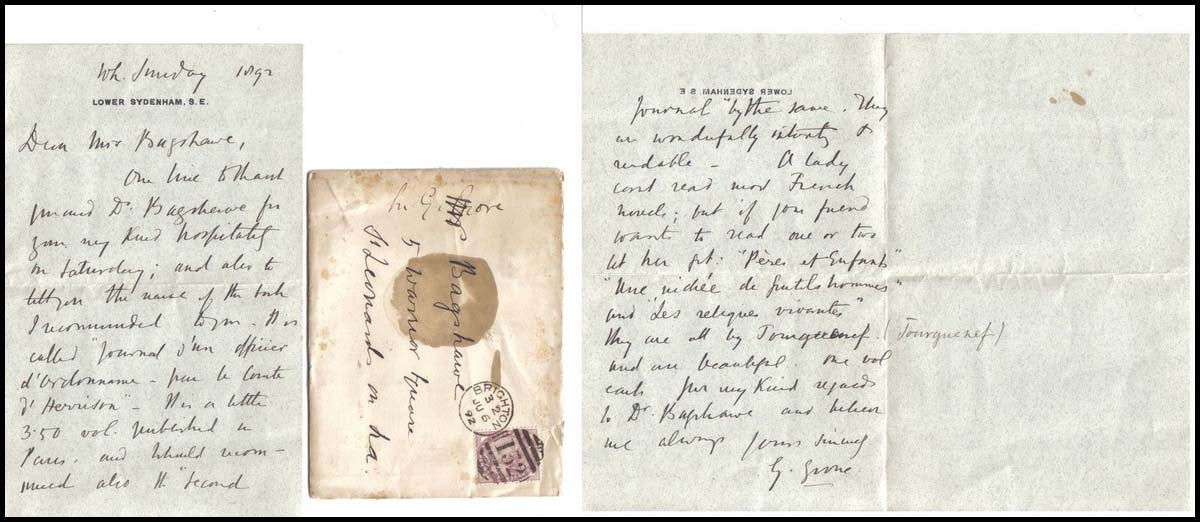 Wh. Sunday 1892
LOWER SYDENHAM, S.E.
Dear Mrs Bagshawe,
One line to thank
you and Dr. Bagshawe for
your very kind hospitality
on Saturday; and also to
tell you the name of the book
I recommended to you. It is
called "Journal d'un officier
d'ordonnance - par le Comte
d'Herrison" - It is a little
3.50 vol. published in
Paris. and I should recom-
mend also the "Second
Sir G. Grove
Mrs Bagshawe
5 Warrior Square
St Leonards on Sea.
BRIGHTON
JU 6
92
152
LOWER SYDENHAM S E
Journal" by the same. They
are wonderfully &
readable - A lady
can't read most French
novels; but if your friend
wants to read one or two
let her get: "Pères et Enfants"
"Une nichée de gentilshommes"
and "Les reliques vivantes"
They are all by Tourguenef. (Tourguenef)
and are beautiful. one vol
each. very kind regards
to Dr. Bagshawe and believe
me always yours sincerely
G. Grove